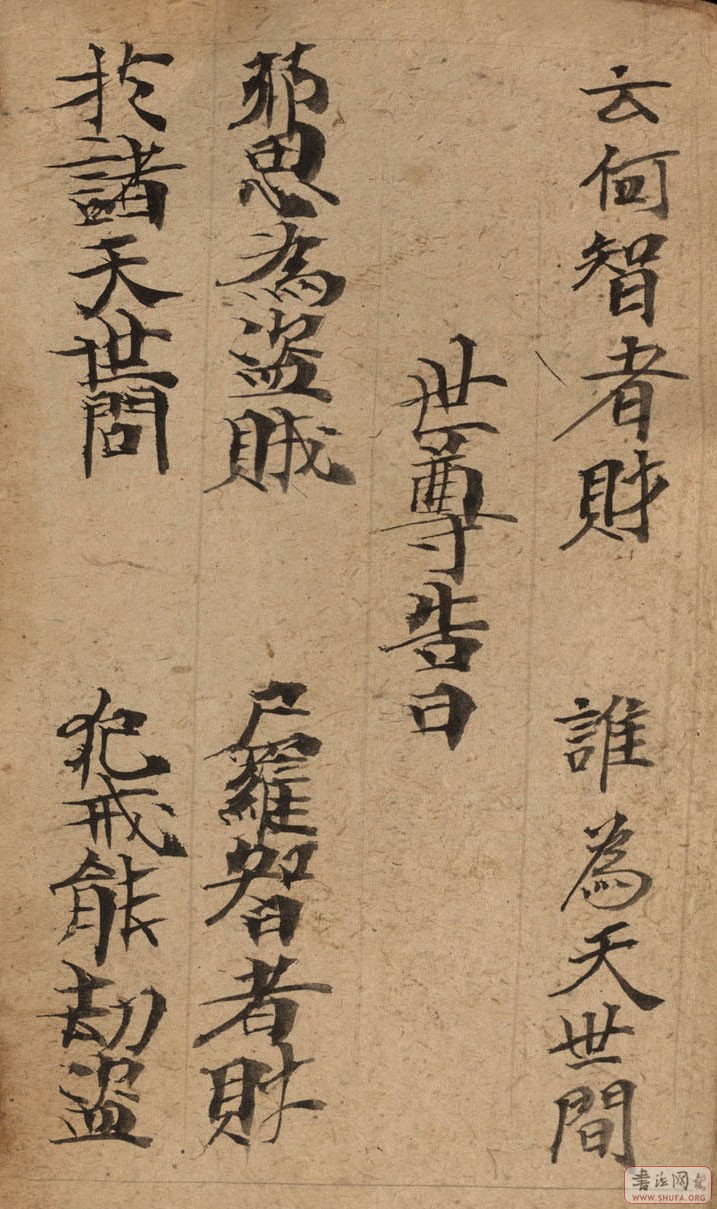 云何智者財 誰為天世間
世尊告曰
邪思為盗賊 尸羅智者財
扵諸天世問 犯戒能劫盗
书法网
WWW.SHUFA.ORG